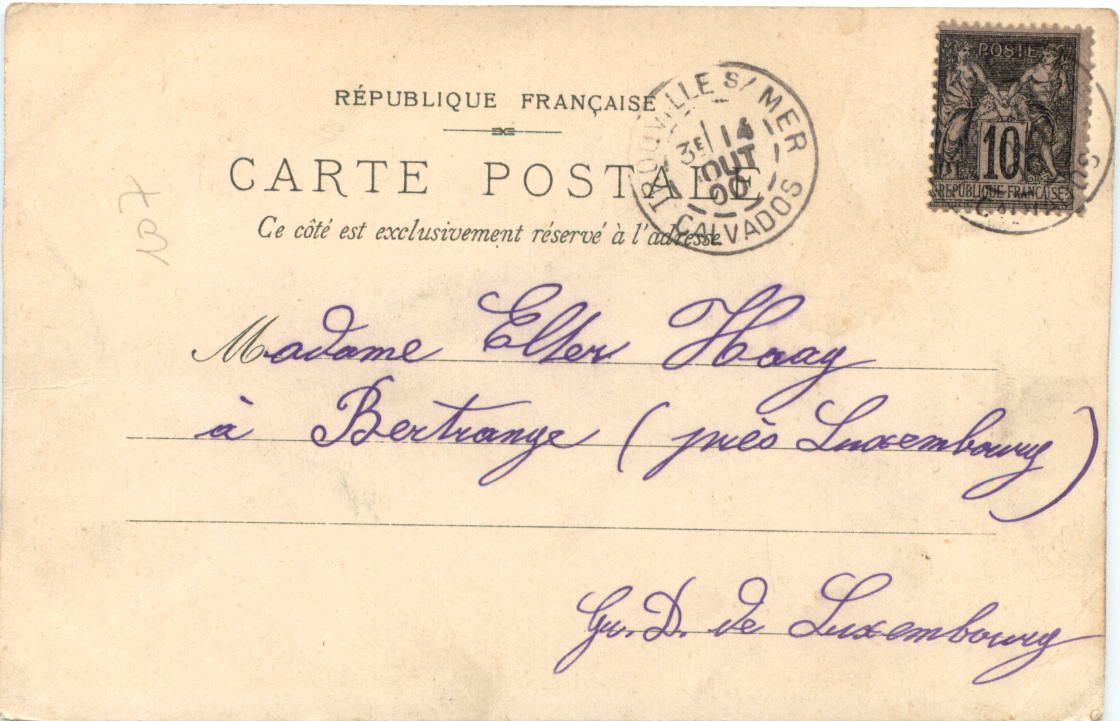 RÉPUBLIQUE FRANÇAISE
CARTE POSTALE
Ce côté est exclusivement réservé à l'adresse.
TROUVILLE S/ MER
3E 14
AOUT
00
CALVADOS
POSTE
10
REPUBLIQUE FRANÇAISE
107
Madame Elter Haag
à Bertrange (près Luxembourg)
Gr. D. de Luxembourg